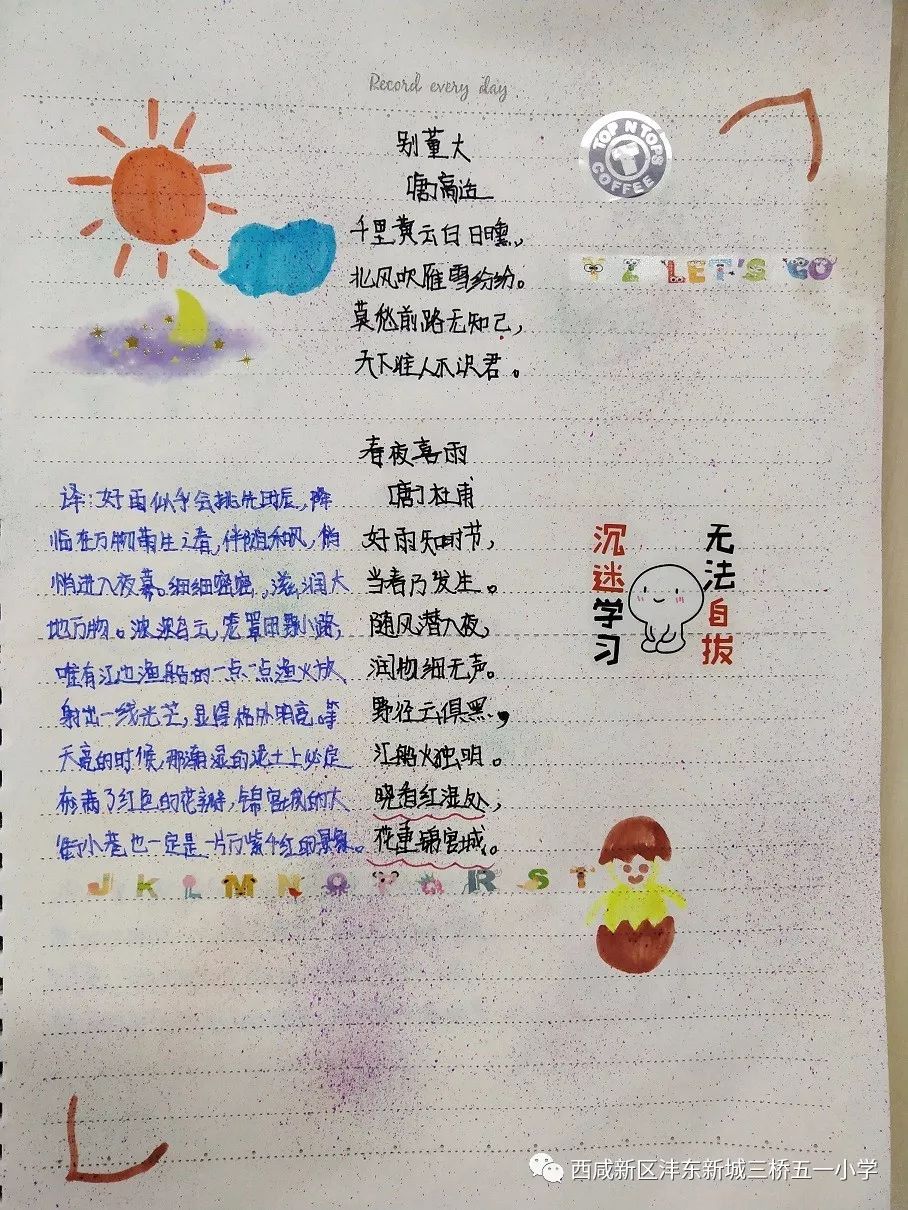 Record every day
别董大
[唐]高适
千里黄云白日曛,
北风吹雁雪纷纷。
莫愁前路无知己,
天下谁人不识君。
TOP N TOPS
T
COFFEE
Y Z LET'S GO
春夜喜雨
[唐]杜甫
好雨知时节,
当春乃发生。
随风潜入夜,
润物细无声。
野径云俱黑,
江船火独明。
晓看红湿处,
花重锦宫城。
译:好雨似乎会挑选时辰,降
临在万物萌生之春,伴随和风,悄
悄进入夜幕。细细密密,滋润大
地万物。浓浓乌云,笼罩田野小路,
唯有江边渔船的一点一点渔火放
射出一线光芒,显得格外明亮。等
天亮的时候,那潮湿的泥土上必定
布满了红色的花瓣,锦宫城的大
街小巷也一定是一片万紫千红的景象。
沉迷学习
无法自拔
J K L M N O P Q R S T
西咸新区沣东新城三桥五一小学